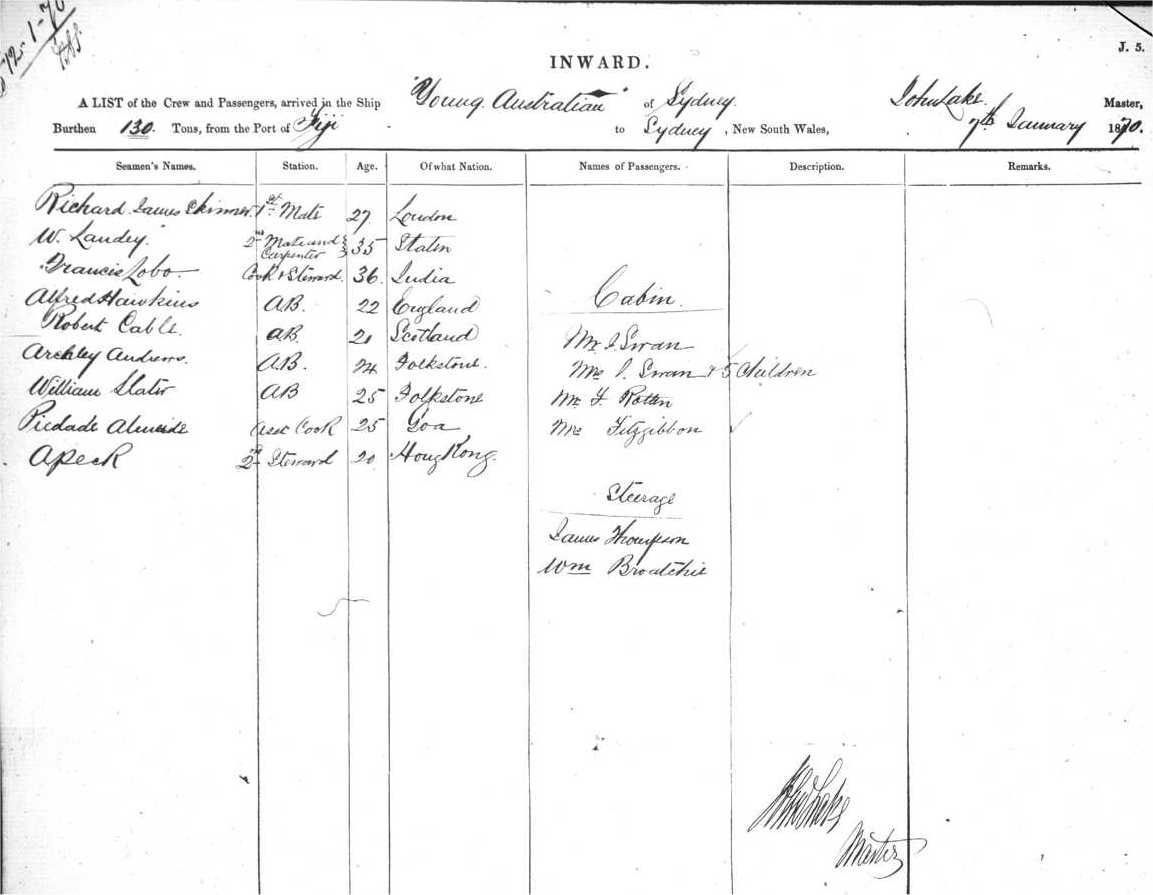 12-1-70
J. 5.
INWARD.
A LIST of the Crew and Passengers, arrived in the Ship "Young Australian" of Sydney. John Lake. Master,
Burthen 130. Tons, from the Port of Fiji to Sydney, New South Wales, 7th January 1870.
Seamen's Names. Station. Age. Of what Nation. Names of Passengers. Description. Remarks.
Richard James Skinner. 1st Mate 27 London
W. Landey 2nd Mate and Carpenter 35
Francis Lobo Cook & Steward. 36 India
Cabin.
Alfred Hawkins A.B. 22 England
Robert Cable. AB. 21 Scotland Mr J. Swan
Andrews. A.B. 24 Folkstone. Mrs J. Swan & 5 Children
William Slater AB 25 Folkstone Mr F. Rotten
Piedade Almeide Asst Cook 25 Goa Mrs Fitzgibbon
Apeck 2nd Steward 20 Hong Kong.
Steerage
James Thompson
Wm Broatchie
John Lake
Master